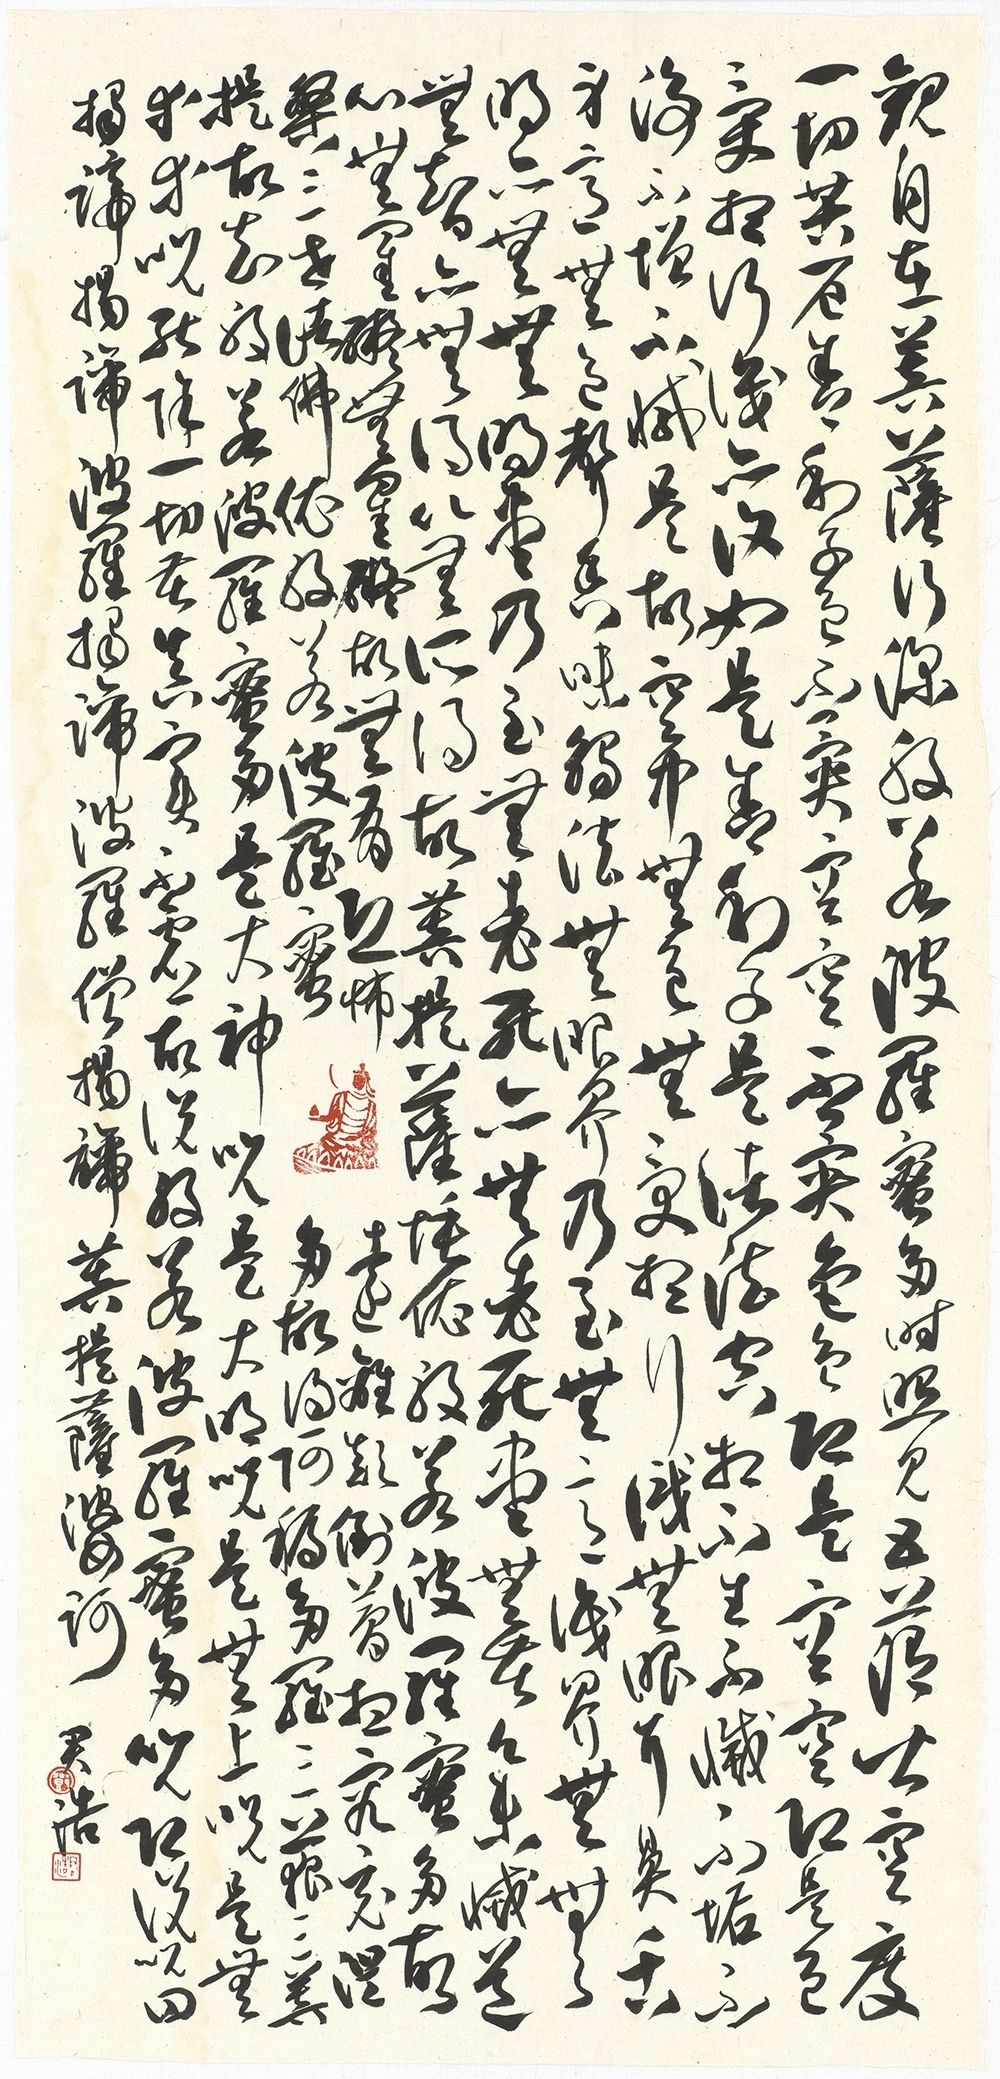 觀自在菩薩行深般若波羅蜜多時照見五蘊皆空度
一切苦厄舍利子色不異空空不異色色即是空空即是色
受想行識亦復如是舍利子是諸法空相不生不滅不垢不
淨不增不減是故空中無色無受想行識無眼耳鼻舌
身意無色聲香味觸法無眼界乃至無意識界無無
明亦無無明盡乃至無老死亦無老死盡無苦集滅道
無智亦無得以無所得故菩提薩埵依般若波羅蜜多故
心無罣礙無罣礙故無有恐怖遠離顛倒夢想究竟涅
槃三世諸佛依般若波羅蜜多故得阿耨多羅三藐三菩
提故知般若波羅蜜多是大神咒是大明咒是無上咒是無
等等咒能除一切苦真實不虛故說般若波羅蜜多咒即說咒曰
揭諦揭諦波羅揭諦波羅僧揭諦菩提薩婆訶